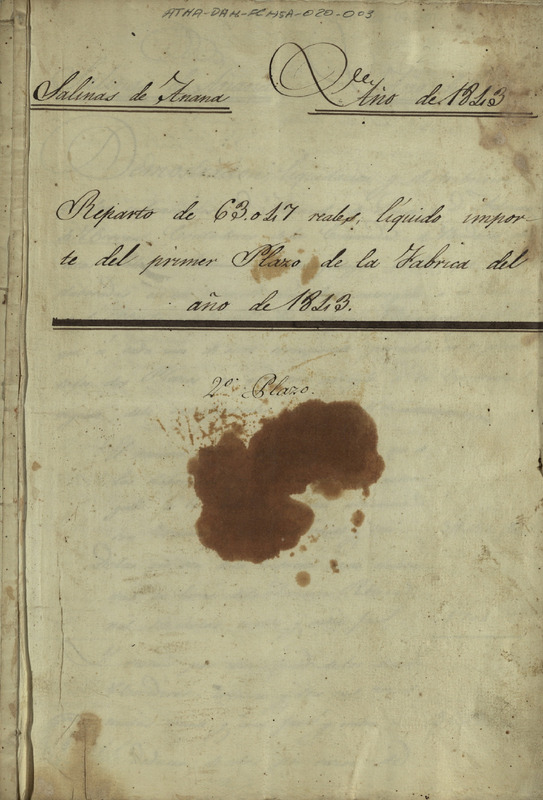 ATHA-DAH-FCMSA-020-003
Salinas de Anana
Año de 1843
Reparto de 63.047 reales, líquido impor-
te del primer Plazo de la Fabrica del
año de 1843.
2º Plazo.